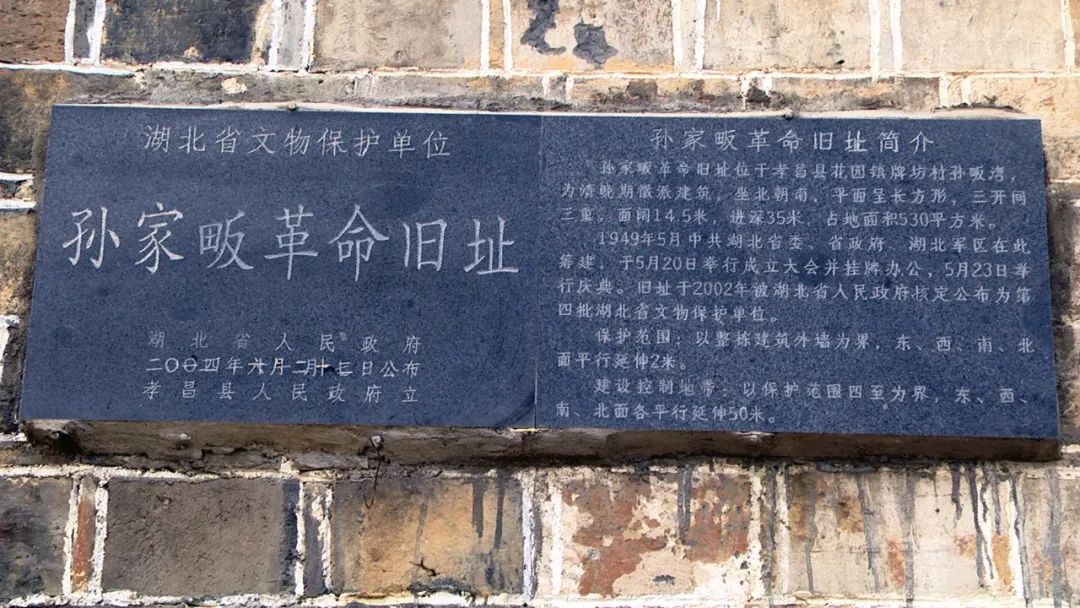 湖北省文物保护单位
孙家畈革命旧址
湖北省人民政府
二〇〇四年六月二十三日公布
孝昌县人民政府立
孙家畈革命旧址简介
孙家畈革命旧址位于孝昌县花园镇牌坊村孙畈湾，
为清晚期徽派建筑，坐北朝南，平面呈长方形，三开间
三重。面阔14.5米，进深35米，占地面积530平方米。
1949年5月中共湖北省委、省政府、湖北军区在此
筹建，于5月20日举行成立大会并挂牌办公，5月23日举
行庆典。旧址于2002年被湖北省人民政府核定公布为第
四批湖北省文物保护单位。
保护范围：以整栋建筑外墙为界，东、西、南、北
面平行延伸2米。
建设控制地带：以保护范围四至为界，东、西、
南、北面各平行延伸50米。